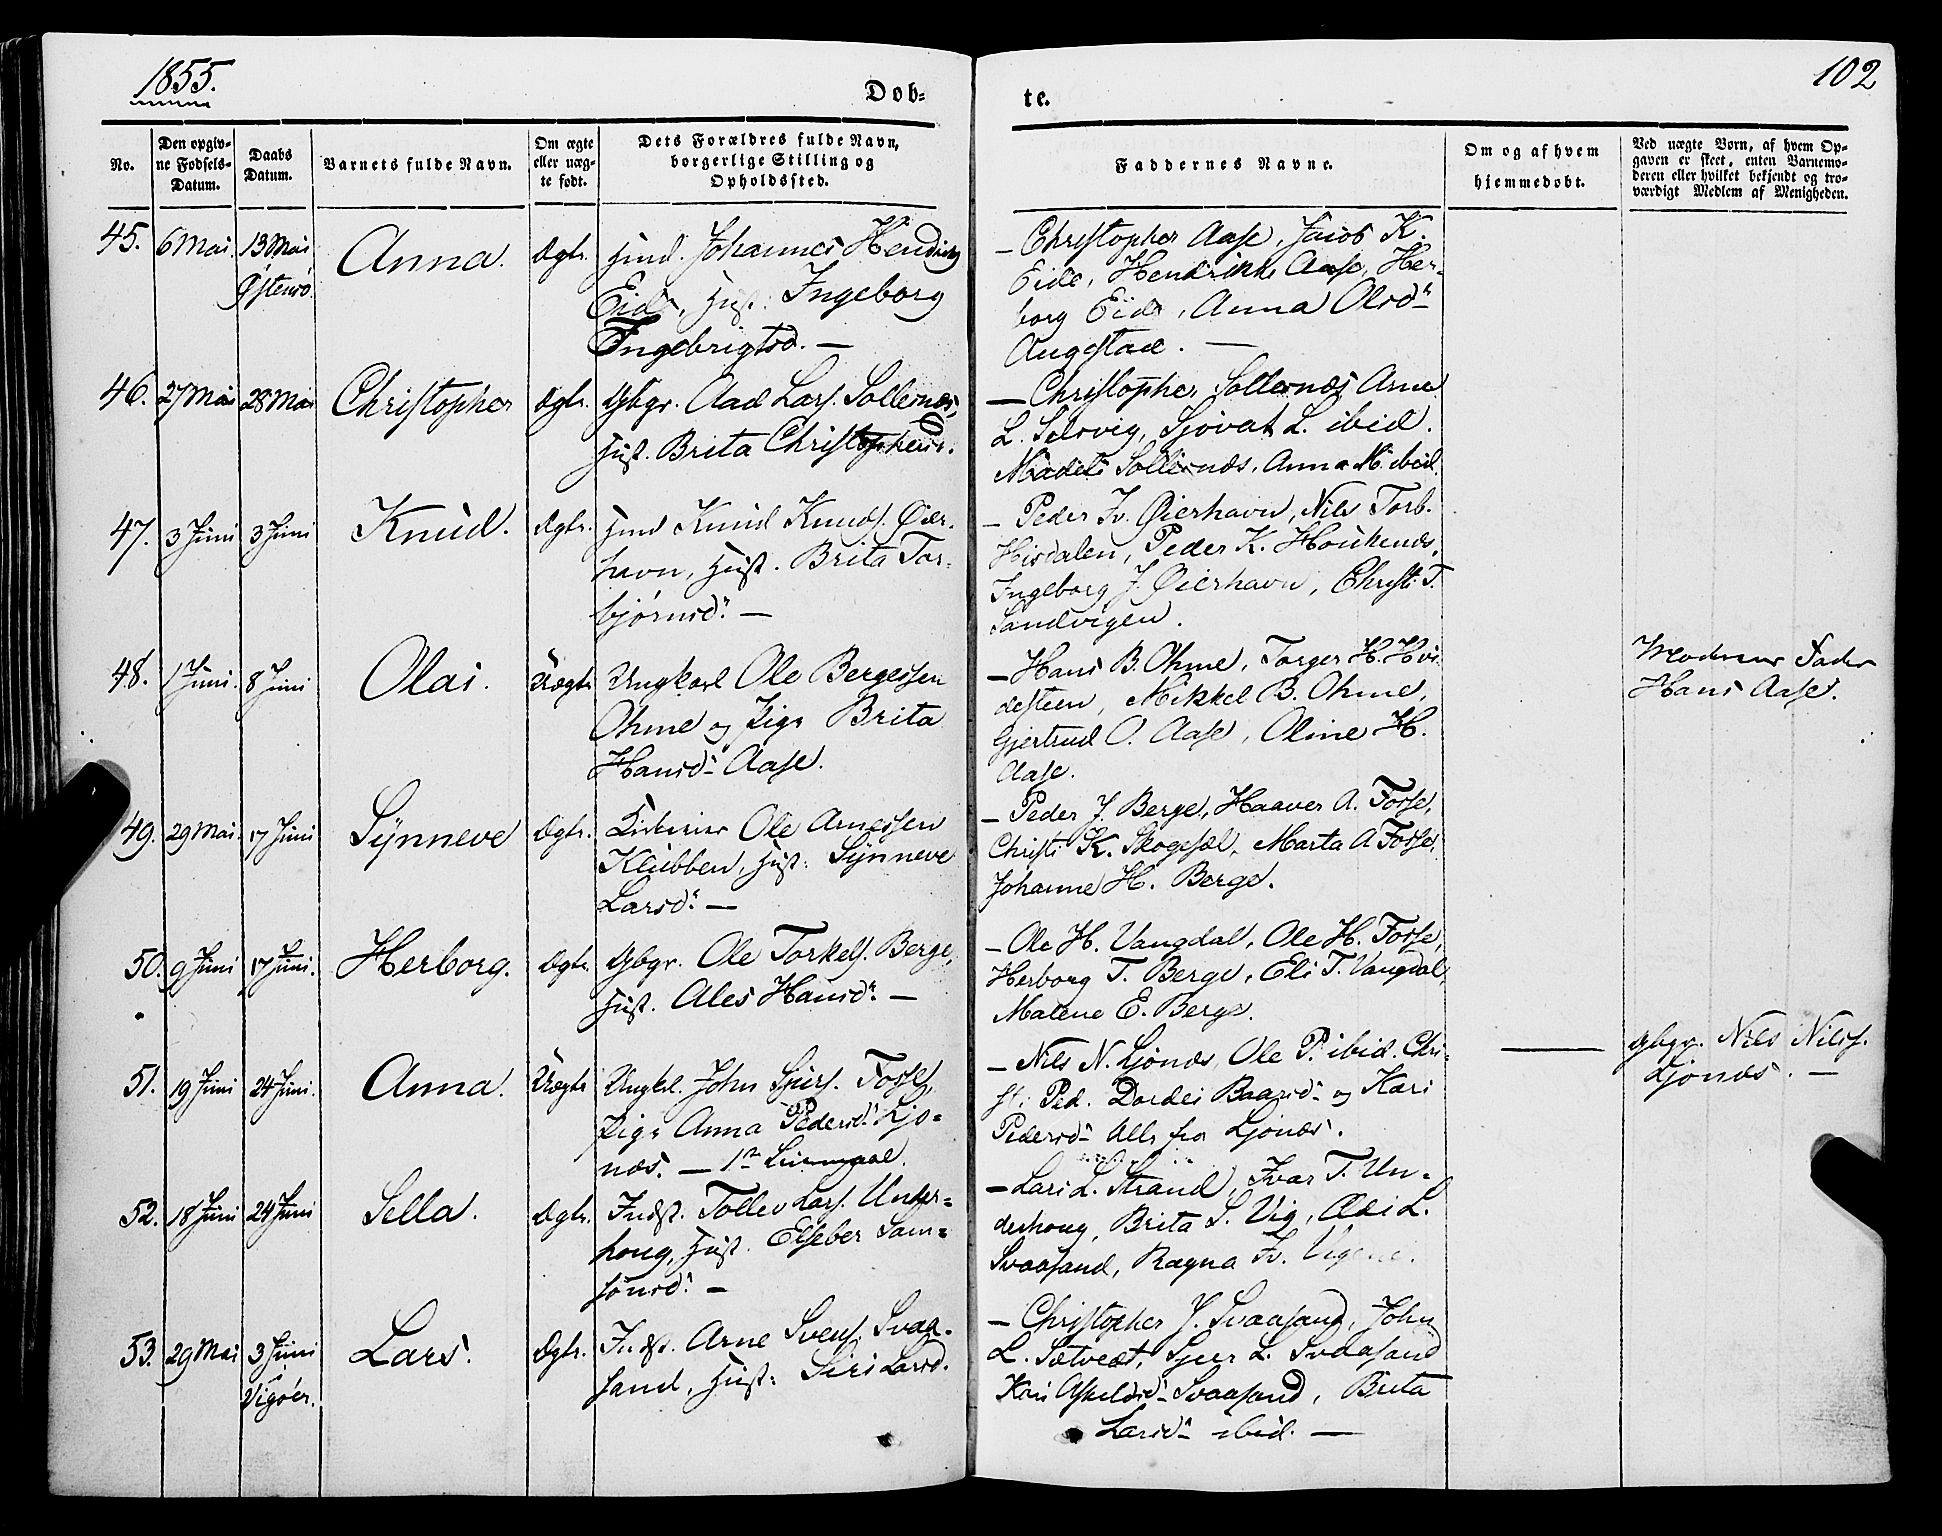 1855.
102
Dob-
te.
No.
Den opgiv-
ne Fødsels-
Datum.
Daabs
Datum.
Barnets fulde Navn.
Om ægte
eller uæg-
te født.
Dets Forældres fulde Navn,
borgerlige Stilling og
Opholdssted.
Faddernes Navne.
Om og af hvem
hjemmedøbt.
Ved uægte Børn, af hvem Op-
gaven er skeet, enten Barnemo-
deren eller hvilket bekjendt og tro-
værdigt Medlem af Menigheden.
45. 6 Mai. 13 Mai Anna. Ægte. Huusd. Johannes
Østensö
Eide, Hust: Ingeborg
Ingebrigtsd. —
— Christopher Aase, Jacob K.
Eide, Hendrikke Aase, Her-
borg Eide, Anna Olsd.
Augestad. —
46. 27 Mai 28 Mai Christopher Ægte. Gbgr. Aad Lars. Sollesnæs,
Hust. Brita Christophersd.
— Christopher Sollesnæs Arne
L. Selsvig, Sjovat L. ibid.
Sollesnæs, Anna M. ibid
47. 3 Juni 3 Juni Knud. Ægte. Knud Knuds. Øier-
havn, Hust. Brita Tor-
bjørnsd. —
— Peder Iv. Øierhavn, Nils Torb.
Hisdalen, Peder K. Houkenæs,
Ingeborg J. Øierhavn, Christi T.
Sandvigen.
48. 1 Juni. 8 Juni Olai. Uægte Ungkarl Ole Bergesen
Ohme og Pige Brita
Hansd. Aase.
— Hans B. Ohme, Torger H. Hvi-
desteen, Mikkel B. Ohme,
Gjertrud O. Aase, Oline H.
Aase.
Moderens Fader
Hans Aase.
49. 29 Mai. 17 Juni Synneve Ægte. Ole Arnessen
Klubben, Hust: Synneve
Larsd. —
— Peder J. Berge, Haaver A. Fosse,
Christi K. Skogesæl, Marta A Fosse,
Johanne H. Berge.
50. 9 Juni 17 Juni. Herborg. Ægte. Gbgr. Ole Torkels. Berge,
Hust. Ales Hansd. —
— Ole H. Vangdal, Ole H. Fosse,
Herborg T. Berge, Eli T. Vangdal,
Malene E. Berge.
51. 19 Juni 24 Juni. Anna. Uægte Ungkl. John Sjurs. Fosse,
Pige Anna Pedersd. Ljo-
næs. — 1ste Leiermaal.
— Nils N. Ljonæs, Ole P. ibid. Chri-
st: Ped. Dordei Baarsd. og Kari
Pedersd. Alle fra Ljonæs.
— Gbgr. Nils Nilss.
Ljonæs. —
52. 18 Juni 24 Juni Sella. Ægte. Indst. Tollev Lars. Under-
houg, Hust. Elseber Sam-
sonsd. —
— Lars L. Strand, Ivar T. Un-
derhoug, Brita S. Vig, L.
Svaasand, Ragna Iv.
53. 29 Mai 3 Juni Lars. Ægte. Indst. Arne Svens. Svaa-
Vigøer.
sand, Hust: Siri Larsd.
— Christopher J. Svaasand, John
L. Sætvedt, Sjur L. Svaasand
Kari Svaasand, Brita
Larsd. ibid. —